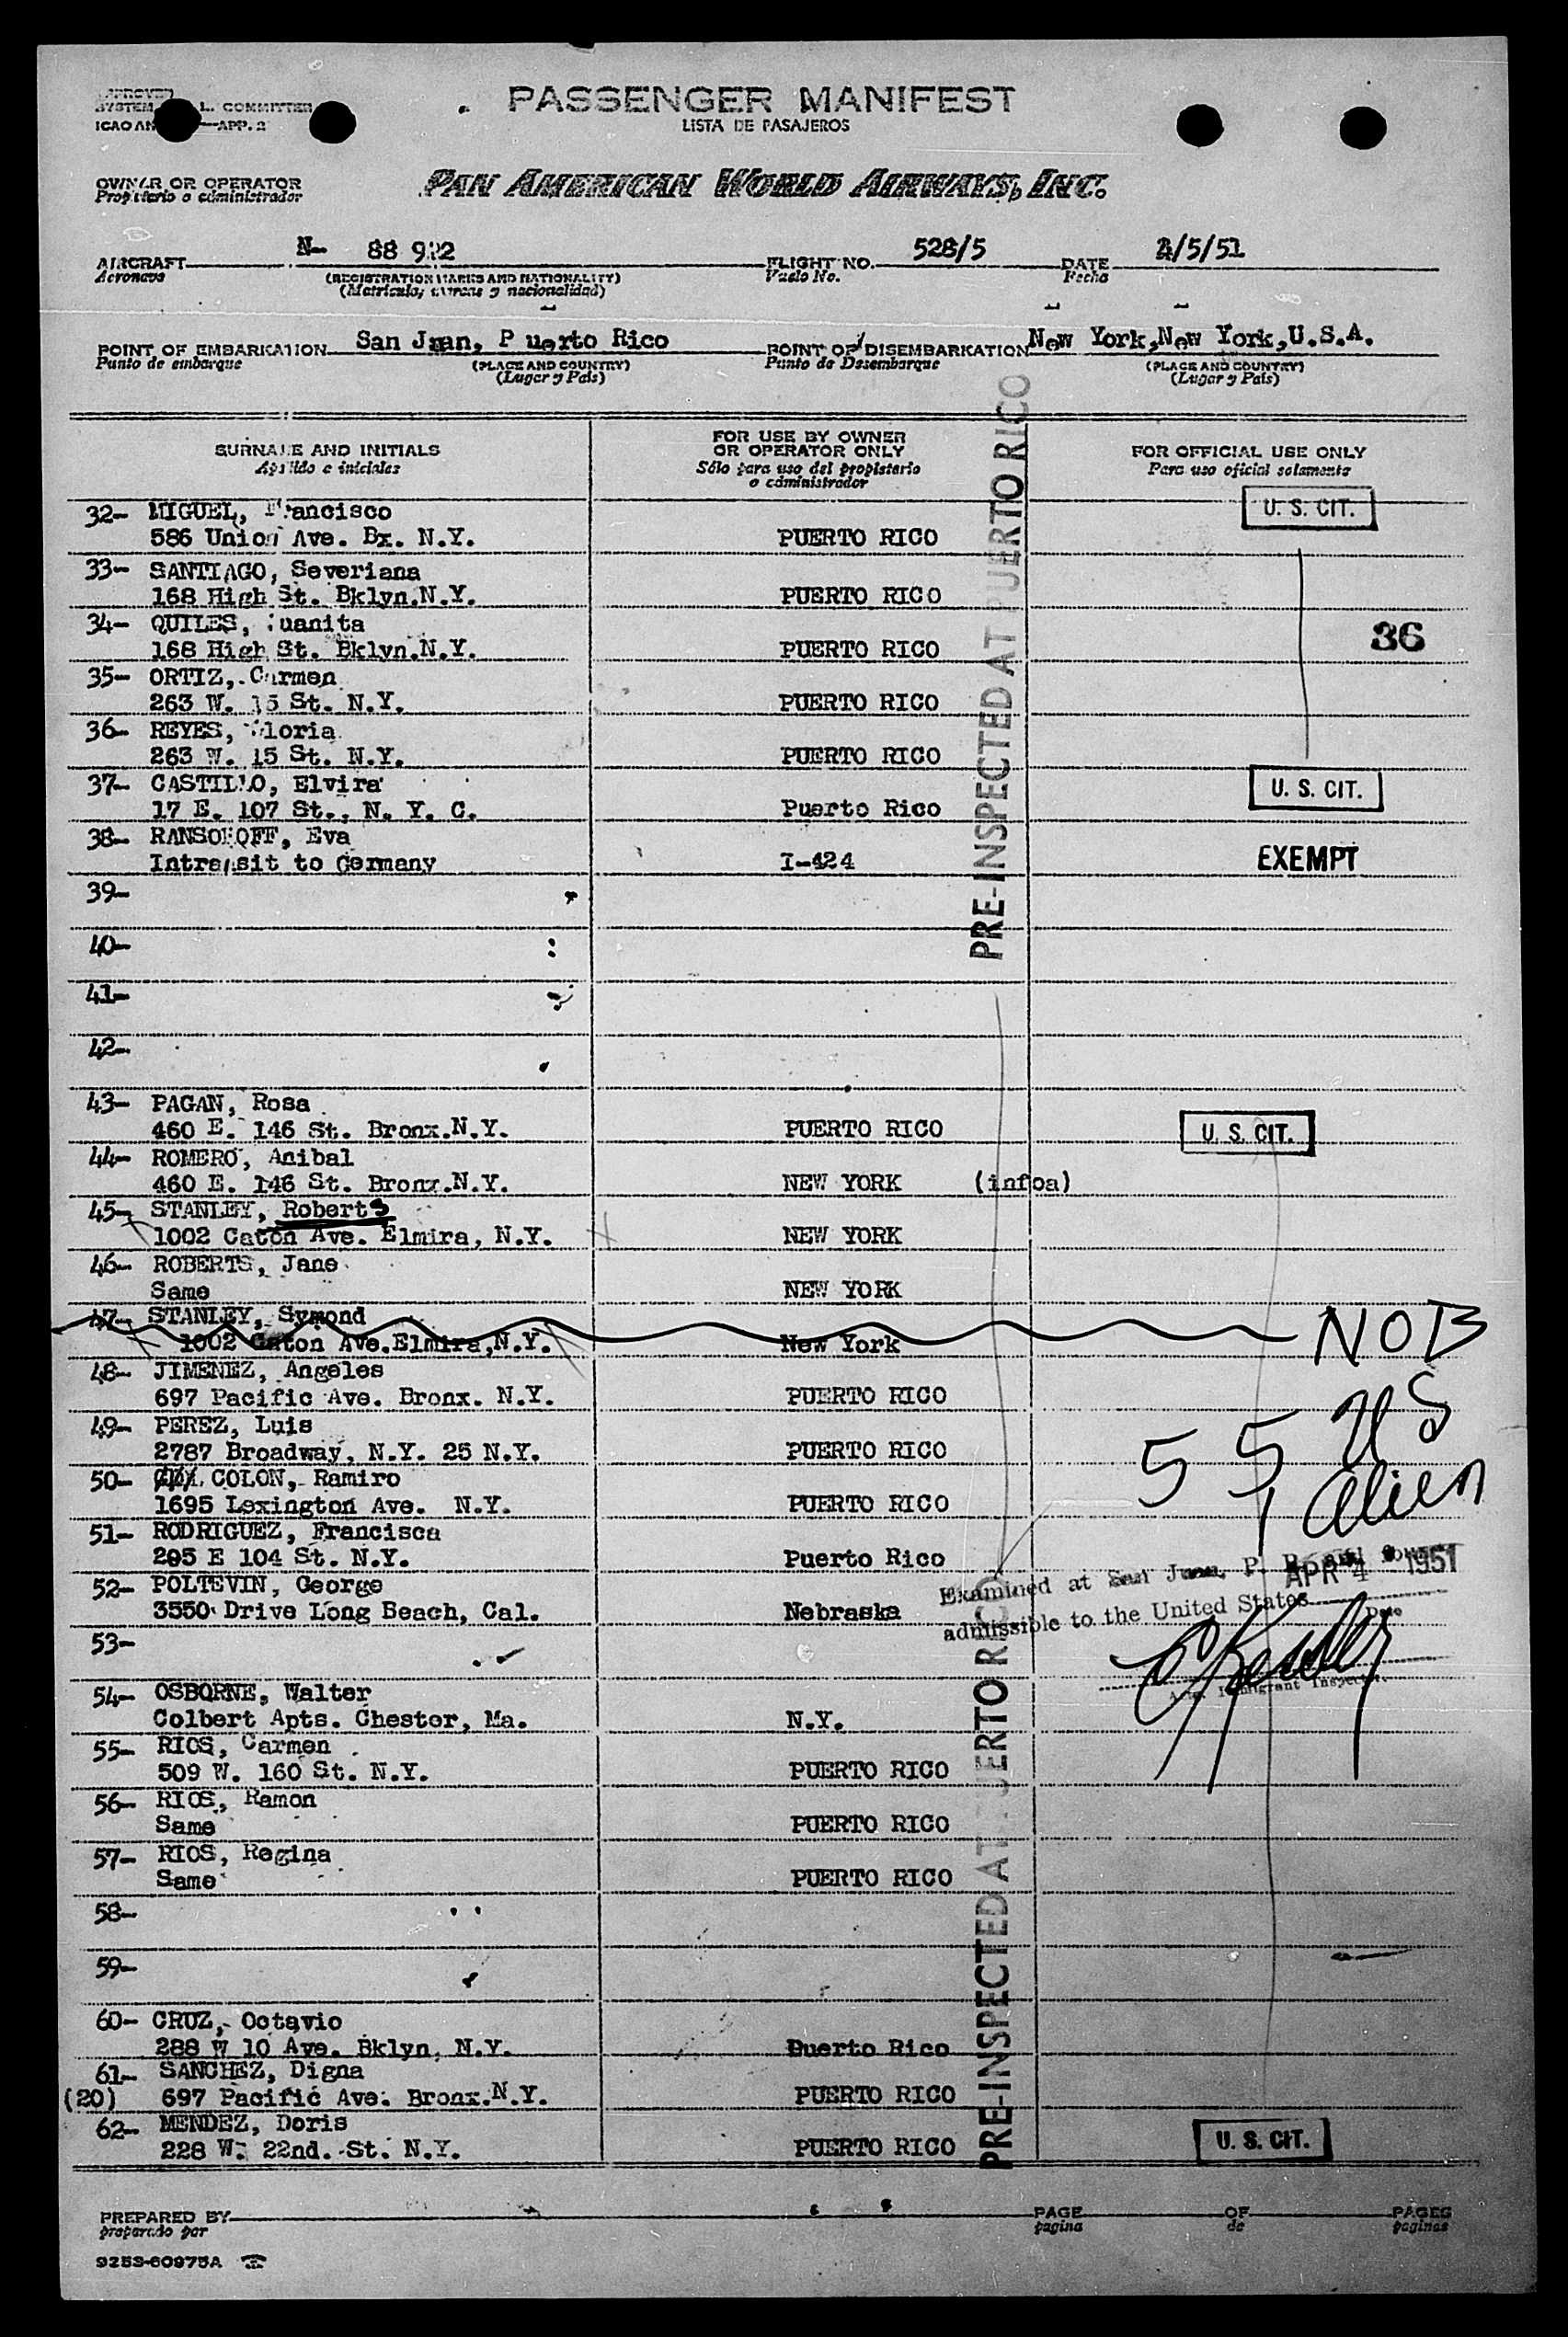 APPROVED
SYSTEM L. COMMITTEE
ICAO AN —APP. 2
PASSENGER MANIFEST
LISTA DE PASAJEROS
OWNER OR OPERATOR
Propietario o administrador
PAN AMERICAN WORLD AIRWAYS, INC.
AIRCRAFT N- 88 922 FLIGHT NO. 528/5 DATE 4/5/51
Aeronave (REGISTRATION MARKS AND NATIONALITY) Vuelo No. Fecha
(Matricula, marcas y nacionalidad)
POINT OF EMBARKATION San Juan, P uerto Rico POINT OF DISEMBARKATION New York, New York, U.S.A.
Punto de embarque (PLACE AND COUNTRY) Punto de Desembarque (PLACE AND COUNTRY)
(Lugar y País) (Lugar y País)
SURNAME AND INITIALS FOR USE BY OWNER OR OPERATOR ONLY FOR OFFICIAL USE ONLY
Apellido e iniciales Sólo para uso del propietario o administrador Para uso oficial solamente
32- MIGUEL, Francisco U. S. CIT.
586 Union Ave. Bx. N.Y. PUERTO RICO
33- SANTIAGO, Severiana
168 High St. Bklyn.N.Y. PUERTO RICO
34- QUILES, Juanita 36
168 High St. Bklyn.N.Y. PUERTO RICO
35- ORTIZ, Carmen
263 W. 15 St. N.Y. PUERTO RICO
36- REYES, Gloria
263 W. 15 St. N.Y. PUERTO RICO
37- CASTILLO, Elvira U. S. CIT.
17 E. 107 St., N. Y. C. Puerto Rico
38- RANSOHOFF, Eva
Intransit to Germany I-424 EXEMPT
PRE-INSPECTED AT PUERTO RICO
39-
40-
41-
42-
43- PAGAN, Rosa
460 E. 146 St. Bronx.N.Y. PUERTO RICO U. S. CIT.
44- ROMERO, Anibal
460 E. 146 St. Bronx.N.Y. NEW YORK (infoa)
45- STANLEY, Roberts
1002 Caton Ave. Elmira, N.Y. NEW YORK
46- ROBERTS, Jane
Same NEW YORK
47- STANLEY, Symond
1002 Caton Ave.Elmira,N.Y. New York NOB
48- JIMENEZ, Angeles
697 Pacific Ave. Bronx. N.Y. PUERTO RICO
49- PEREZ, Luis 55 US
2787 Broadway, N.Y. 25 N.Y. PUERTO RICO
50- COLON, Ramiro 1 alien
1695 Lexington Ave. N.Y. PUERTO RICO
51- RODRIGUEZ, Francisca
205 E 104 St. N.Y. Puerto Rico
Examined at San Juan, P. R. and found APR 4 1951
52- POLTEVIN, George
3550 Drive Long Beach, Cal. Nebraska
admissible to the United States Date
53-
Immigrant Inspector
54- OSBORNE, Walter
Colbert Apts. Chester, Ma. N.Y.
55- RIOS, Carmen
509 W. 160 St. N.Y. PUERTO RICO
56- RIOS, Ramon
Same PUERTO RICO
57- RIOS, Regina
Same PUERTO RICO
58-
59-
60- CRUZ, Octavio
288 W 10 Ave. Bklyn, N.Y. Puerto Rico
61- SANCHEZ, Digna
(20) 697 Pacific Ave. Bronx.N.Y. PUERTO RICO
62- MENDEZ, Doris
228 W. 22nd. St. N.Y. PUERTO RICO U. S. CIT.
PRE-INSPECTED AT PUERTO RICO
PREPARED BY PAGE OF PAGES
preparado por pagina de paginas
9253-60975A